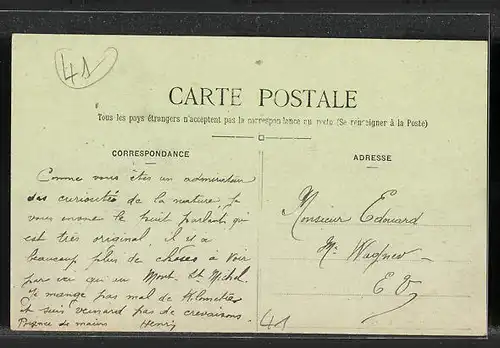 41
CARTE POSTALE
Tous les pays étrangers n'acceptent pas la correspondance au recto (Se renseigner à la Poste)
CORRESPONDANCE
ADRESSE
Comme vous êtes un admirateur
des curiosités de la nature, je
vous envoie le huit parlant qui
est très original, il y a
beaucoup plus de choses à voir
par ici qu'au Mont St Michel.
Je mange pas mal de Kilomètres
et suis veinard pas de crevaisons.
de mains Henri
Monsieur Edouard
Wagner
E V
41